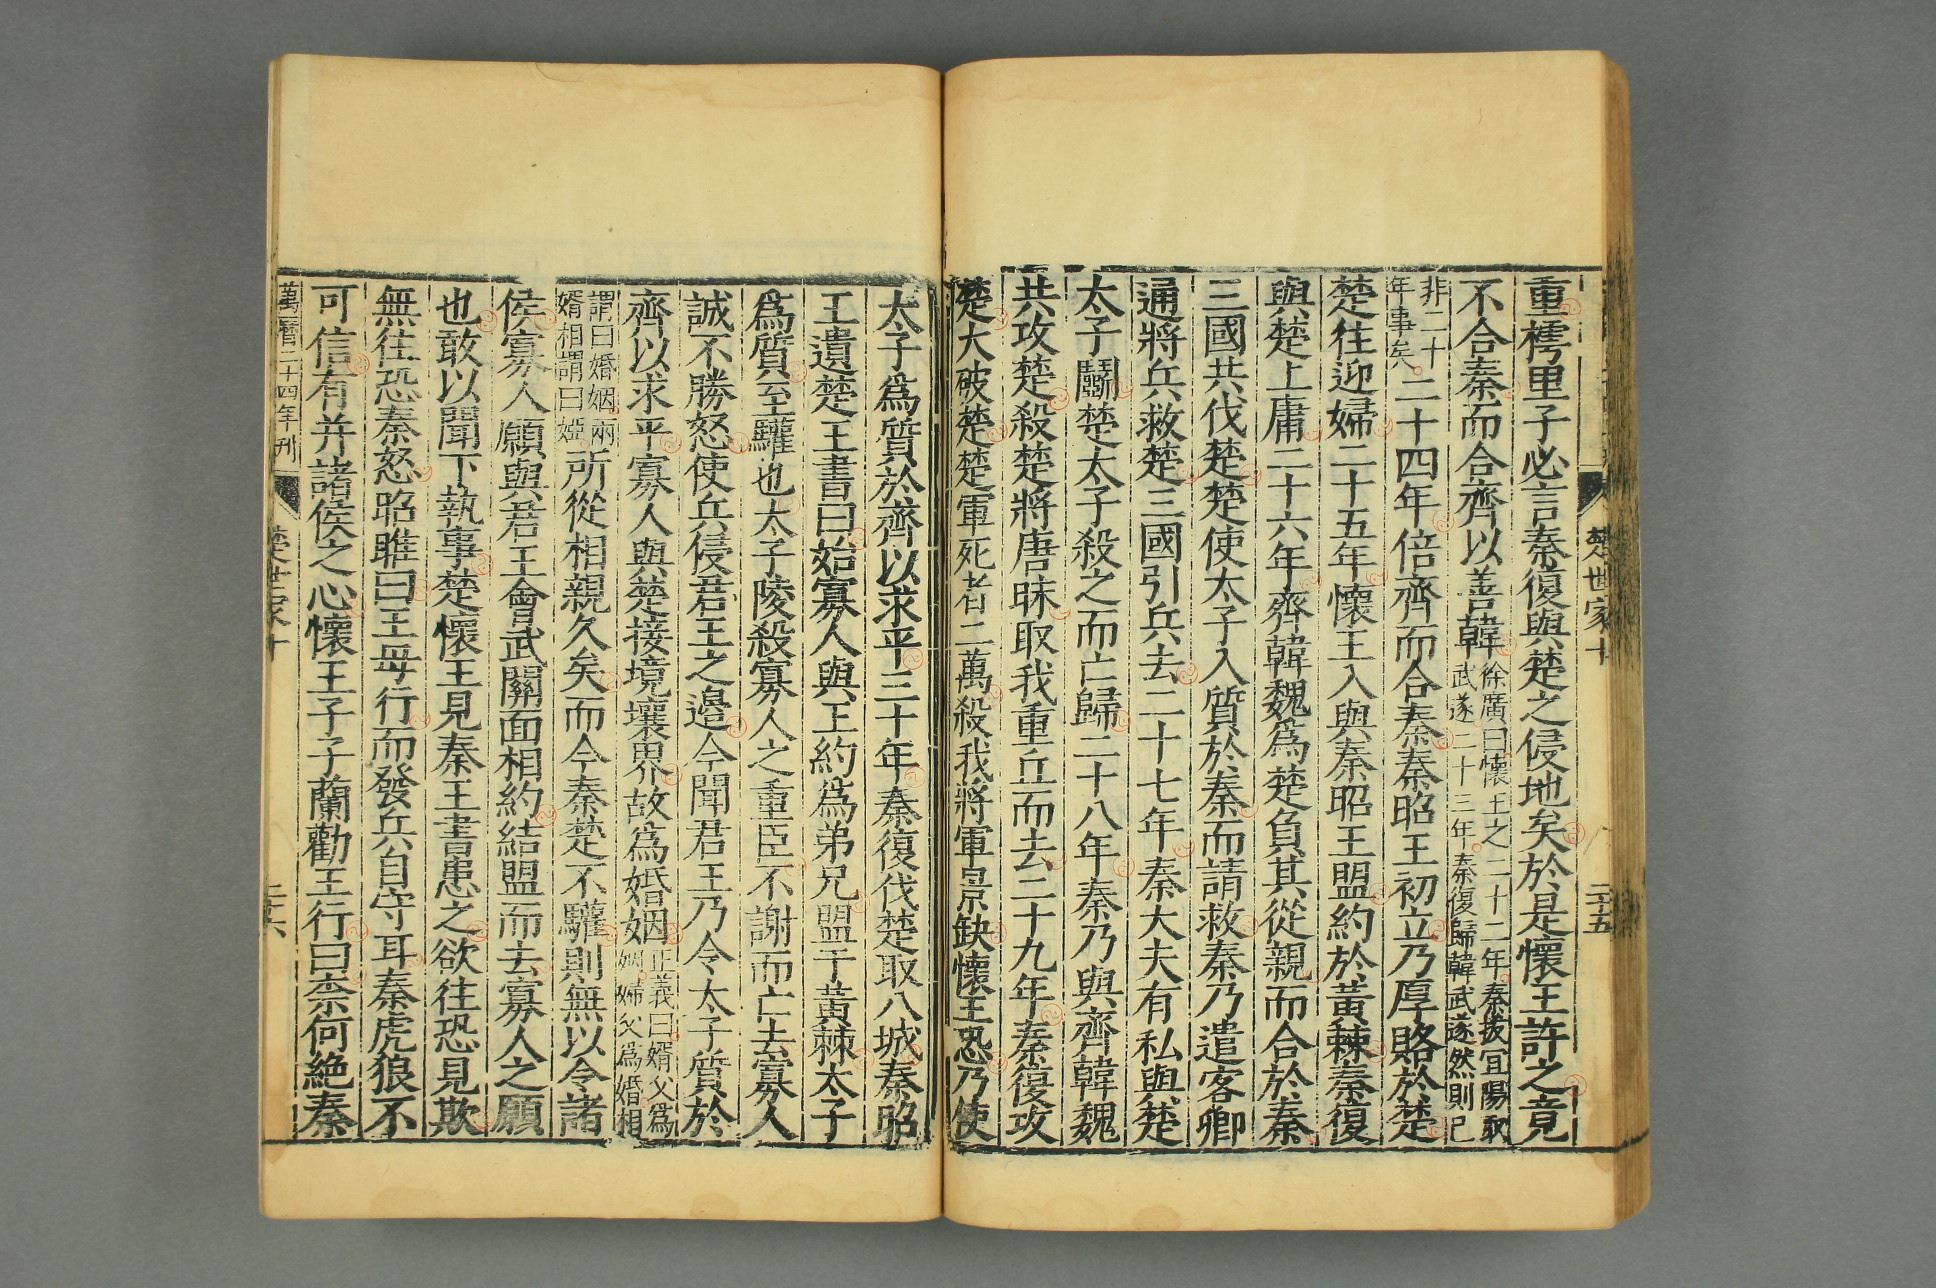 重樗里子必言秦復與楚之侵地矣於是懷王許之竟
不合秦而合齊以善韓徐廣曰懷王之二十二年秦拔宜陽取
武遂二十三年秦復歸韓武遂然則已
非二十
年事矣二十四年倍齊而合秦秦昭王初立乃厚賂於楚
楚往迎婦二十五年懷王入與秦昭王盟約於黃棘秦復
與楚上庸二十六年齊韓魏爲楚負其從親而合於秦
三國共伐楚楚使太子入質於秦而請救秦乃遣客卿
通將兵救楚三國引兵去二十七年秦大夫有私與楚
太子鬭楚太子殺之而亡歸二十八年秦乃與齊韓魏
共攻楚殺楚將唐昧取我重丘而去二十九年秦復攻
楚大破楚楚軍死者二萬殺我將軍景缺懷王恐乃使
楚世家十
二十五
太子爲質於齊以求平三十年秦復伐楚取八城秦昭
王遺楚王書曰始寡人與王約爲弟兄盟于黃棘太子
爲質至驩也太子陵殺寡人之重臣不謝而亡去寡人
誠不勝怒使兵侵君王之邉今聞君王乃令太子質於
齊以求平寡人與楚接境壤界故爲婚姻正義曰婿父爲
姻婦父爲婚相
謂曰婚姻兩
婿相謂曰婭所從相親久矣而今秦楚不驩則無以令諸
侯寡人願與君王會武關面相約結盟而去寡人之願
也敢以聞下執事楚懷王見秦王書患之欲往恐見欺
無往恐秦怒昭雎曰王毋行而發兵自守耳秦虎狼不
可信有并諸侯之心懷王子子蘭勸王行曰柰何絶秦
萬曆二十四年刊
楚世家十
二十六